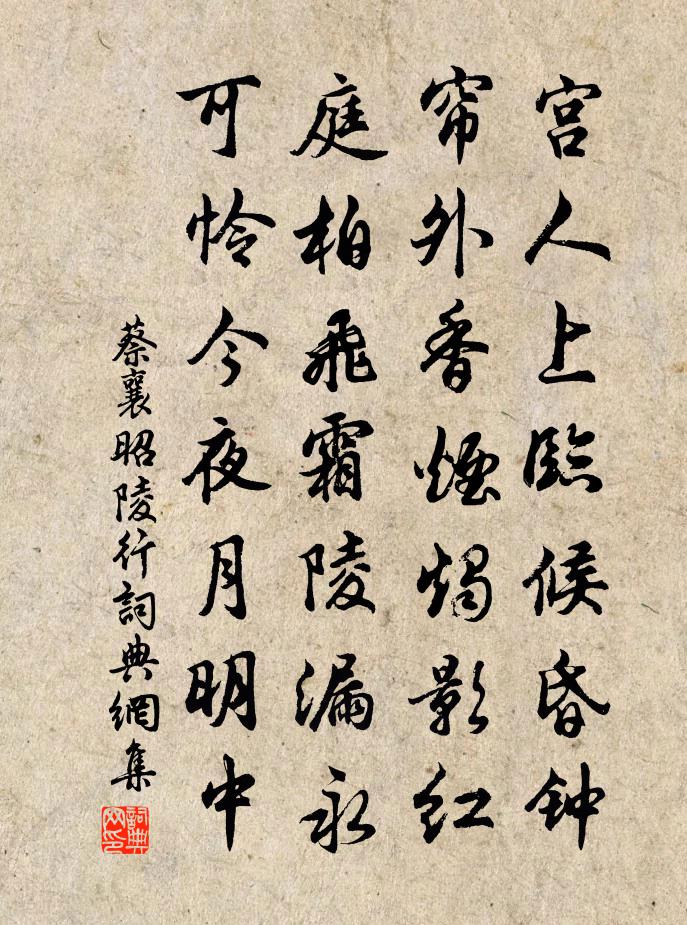 宫人上臨候昏钟
帘外香煙燭影红
庭柏飛霜陵漏永
可怜今夜月明中
蔡襄昭陵行詞典網集
詞典网印